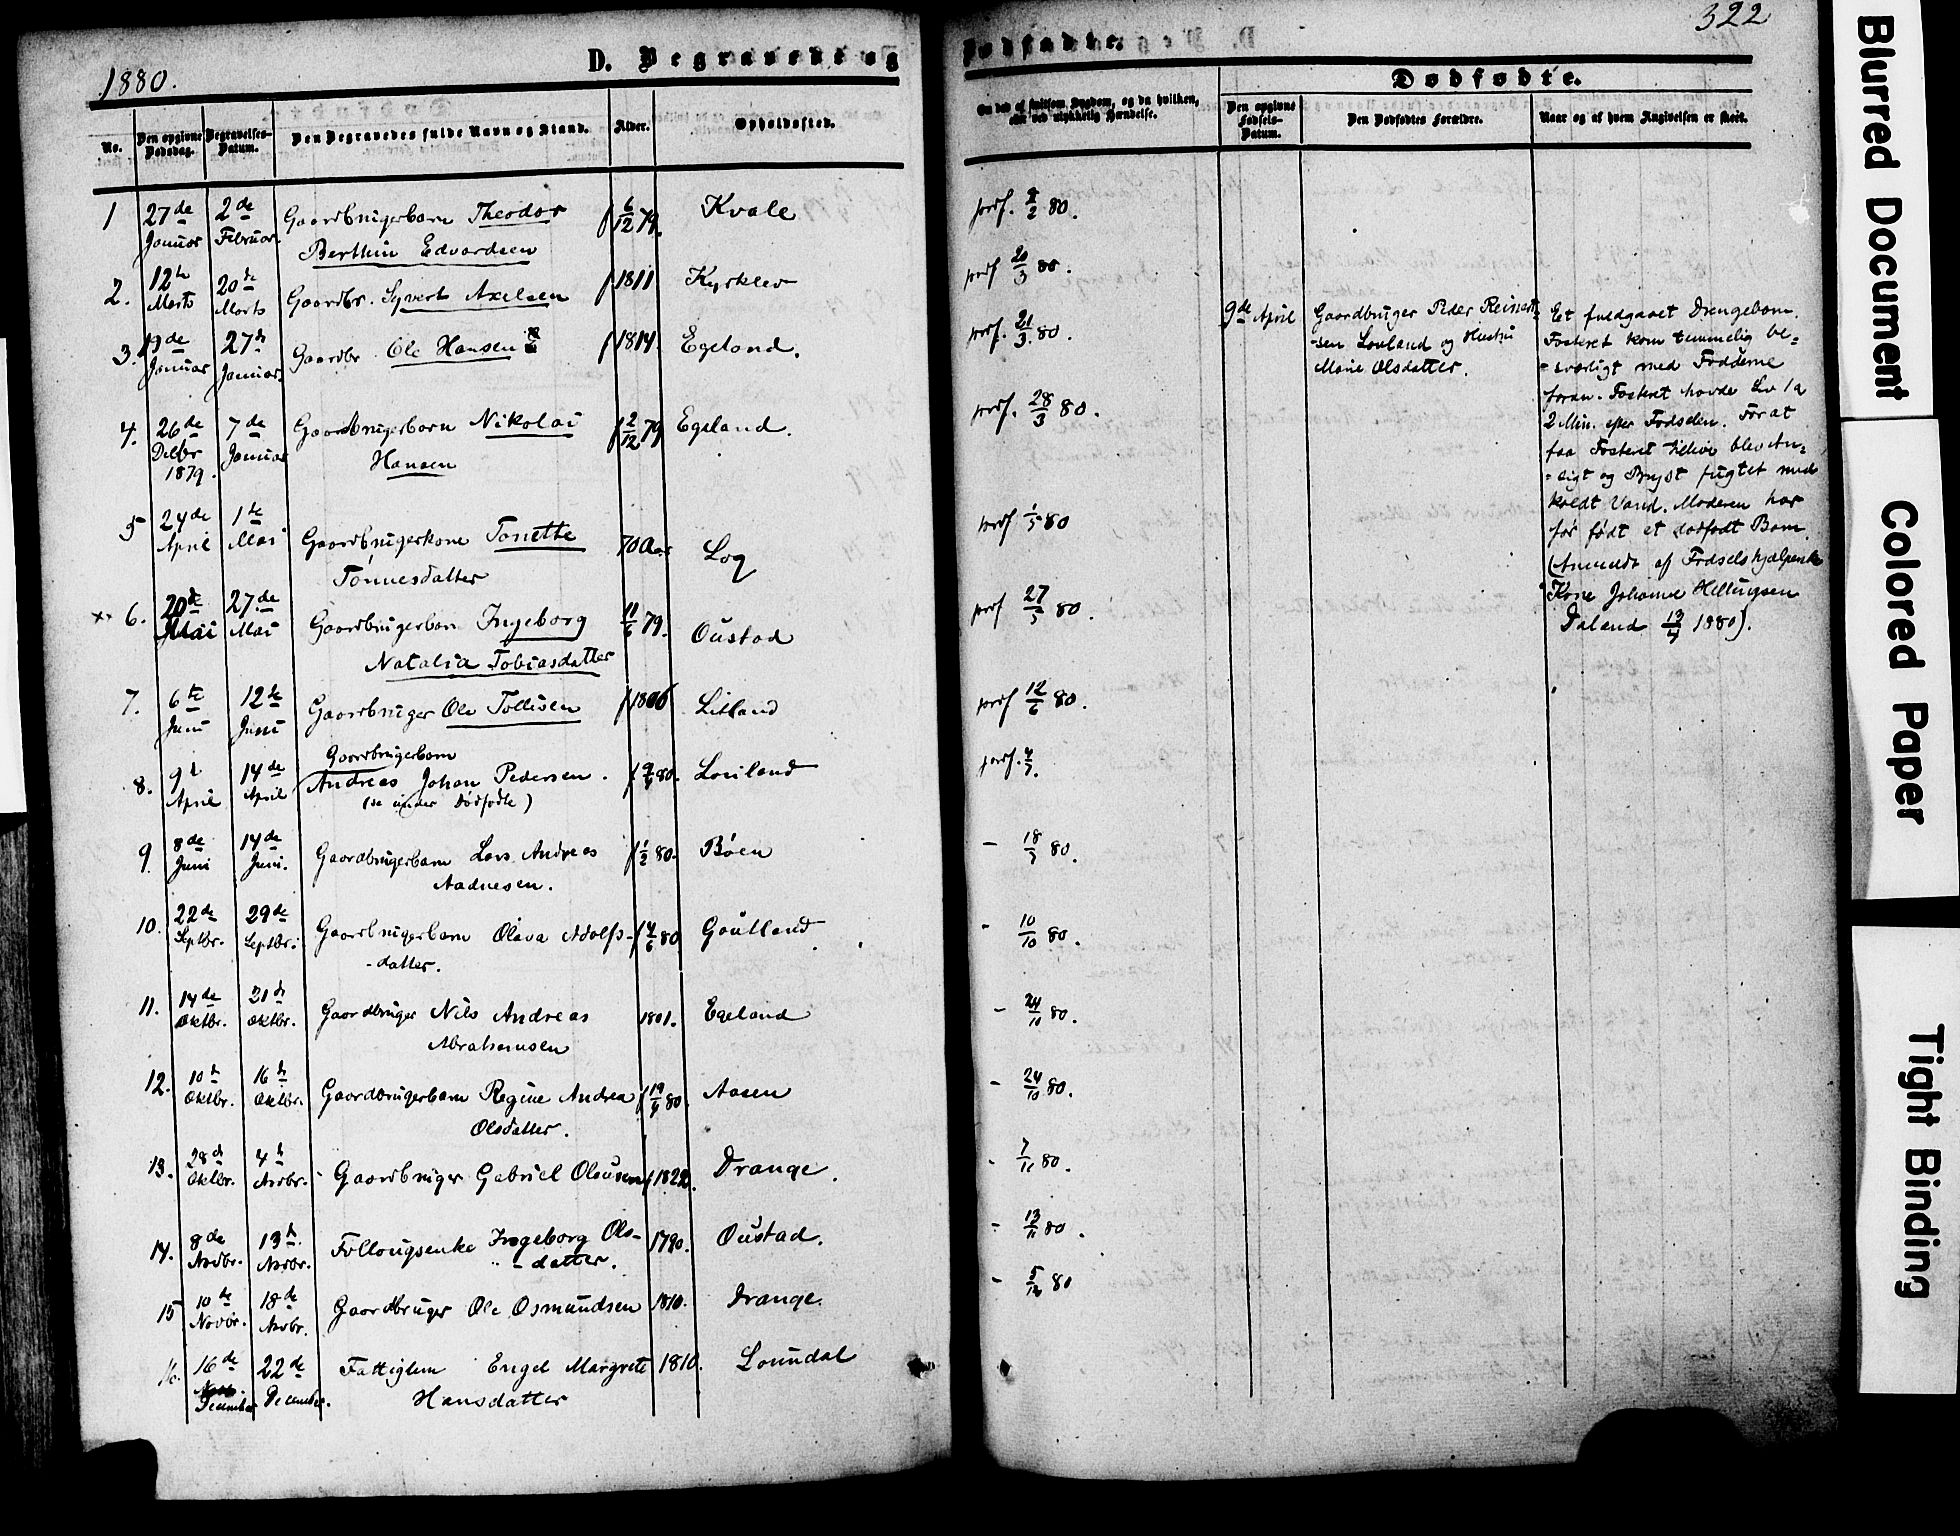 1880.
D. Begravede og
No.
Den opgivne Dødsdag.
Begravelses-Datum.
Den Begravedes fulde Navn og Stand.
Alder.
Opholdssted.
1 27de Januar 2de Februar Gaardbrugerbarn Theodor f 6/12 79. Kvale
Berthin Edvardsen
2. 12te Marts 20de Marts Gaardbr. Syvert Axelsen f 1811
3. 19de Januar 27de Januar. Gaardbr Ole Hansen f 1814. Egeland.
4. 26de Decbr 1879. 7de Januar Gaardbrugerbarn Nikolai f 2/12 79 Egeland.
Hansen
5 24de April 1te Mai Gaardbrugerkone Tonette 70 Aar Log
Tønnesdatter
6. 20de Mai 27.de Mai Gaardbrugerbarn Ingeborg 11/6 79. Oustad
Natalia Tobiasdatter
7. 6te Juni 12te Juni Gaardbruger Ole Tollisen f 1806 Litland
Gaardbrugerbarn
8. 9de April 14de April Andreas Johan Pedersen. f 9/4 80. Louland
(se under Dødfødte)
9. 8de Juni 14de Juni. Gaardbrugerbarn Lars Andreas f 1/2 80. Bøen
Aadnesen.
10. 22de Septbr. 29de Septbr. Gaardbrugerbarn Olava Adolfs- f 4/6 80 Goutland
-datter.
11. 14de Oktbr. 21de Oktbr. Gaardbruger Nils Andreas 1801. Egeland
Abrahamsen
12. 10de Oktbr. 16de Oktbr. Gaardbrugerbarn Regine Andrea f 19/9 80. Aasen
Olsdatter.
13. 28de Oktbr. 4de Novbr. Gaardbruger Gabriel Olausen f 1822. Drange.
14. 8de Novbr. 13de Novbr. Ingeborg Ols- 1790. Oustad.
-datter.
15 10de Novbr. 18de Novbr. Gaardbruger Ole Osmundsen 1810. Drange.
16. 16de December 22de December. Fattiglem Engel Margrete 1810. Loundal
Hansdatter
322
Dødfødte.
Om død af smitsom Sygdom, og da hvilken, eller ved ulykkelig Hændelse.
Dødfødte.
Den opgivne Fødsels-Datum.
Den Dødfødtes Forældre.
Naar og af hvem Angivelsen er skeet.
præf. 2/2 80.
præf 20/3 80.
præf. 21/3. 80.
præf. 28/3 80.
præf 1/5 80
præf 27/5 80.
præf 12/6 80.
præf. 4/7.
- 18/7 80.
- 10/10 80.
- 24/10 80.
- 24/10 80.
- 7/11 80.
- 13/11 80.
- 5/12 80
9de April
Gaardbruger Peder Reinert-
-sen Louland og Hustru
Marie Olsdatter.
Et fuldgaaet Drengebarn.
Fosteret kom temmelig be-
-sværligt med Fødderne
foran. Fosteret havde Liv 1 a
2 Min. efter Fødselen. For at
faa Fosteret tillive blev An-
-sigt og Bryst fugtet med
koldt Vand. Moderen har
før født et dødfødt Barn.
(Anmeldt af Fødselshjælpende
Kone Johanne
Daland 13/4 1880).
Blurred Document
Colored Paper
Tight Binding